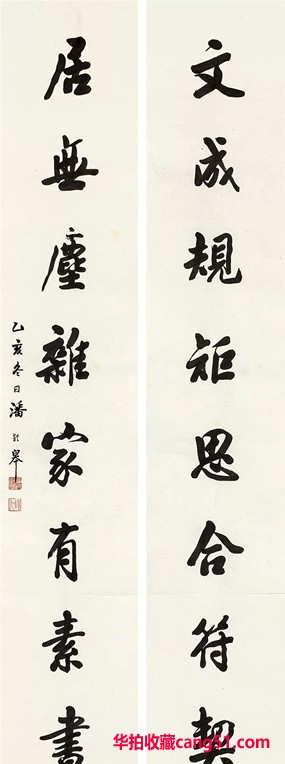 文成規矩思合符契
居無塵雜家有素書
乙亥冬日潘齡皋
华拍收藏cang51.com